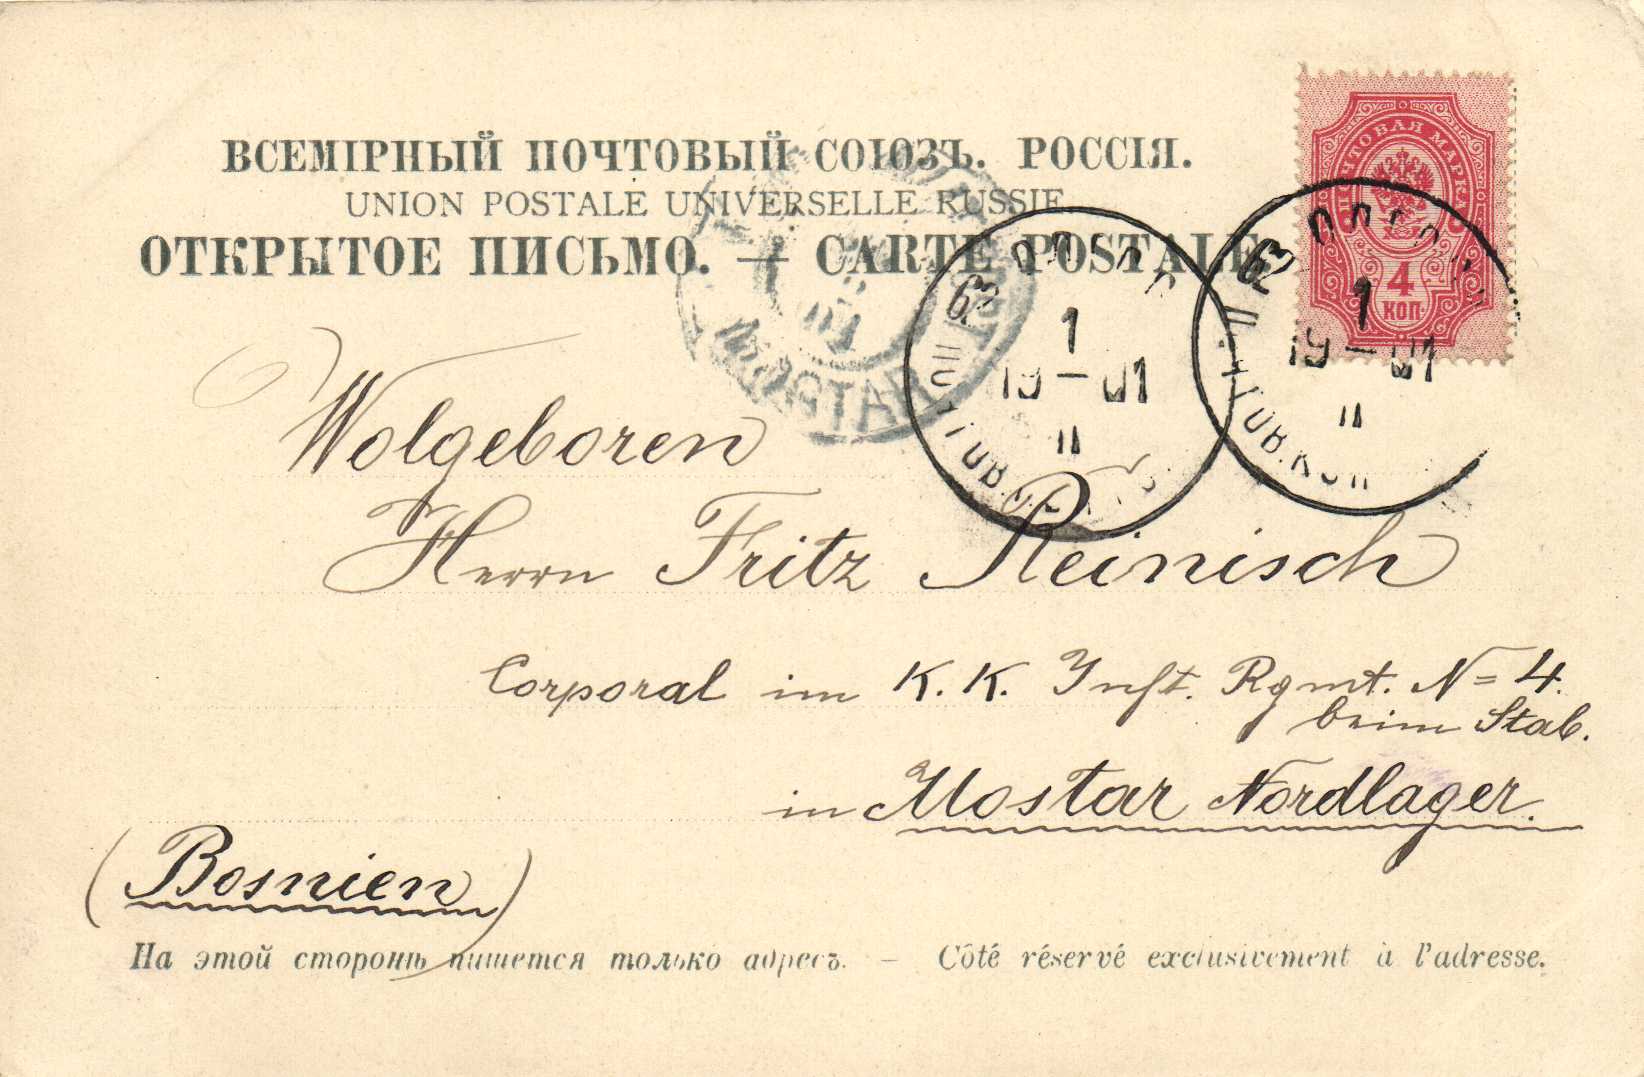 ВСЕМІРНЫЙ ПОЧТОВЫЙ СОЮЗЪ. РОССІЯ.
UNION POSTALE UNIVERSELLE RUSSIE
ОТКРЫТОЕ ПИСЬМО. — CARTE POSTALE
ПОЧТОВАЯ МАРКА
4
КОП.
1
19-01
II
1
19-01
II
MOSTAR
Wolgeboren
Herrn Fritz Reinisch
Corporal im K. K. Inft. Rgmt. N= 4.
beim Stab.
in Mostar Nordlager.
(Bosnien)
На этой сторонѣ пишется только адресъ. — Côté réservé exclusivement à l'adresse.